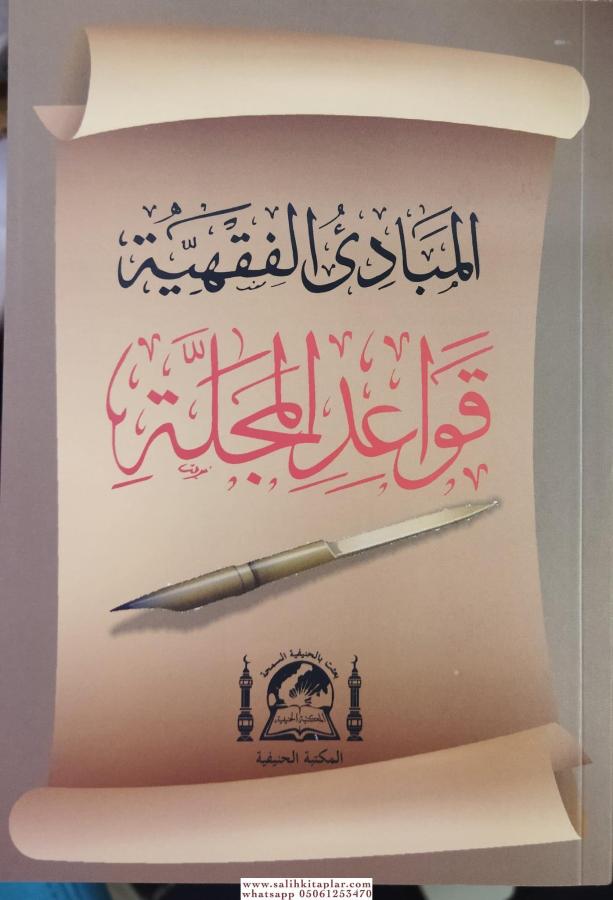 المَبَادِئُ الفِقْهِيَّة
قَوَاعِدِ المَجَلَّةِ
بعثت بالحنيفية السمحة
المكتبة الحنيفية
المكتبة الحنيفية
www.salihkitaplar.com
whatsapp 05061253470